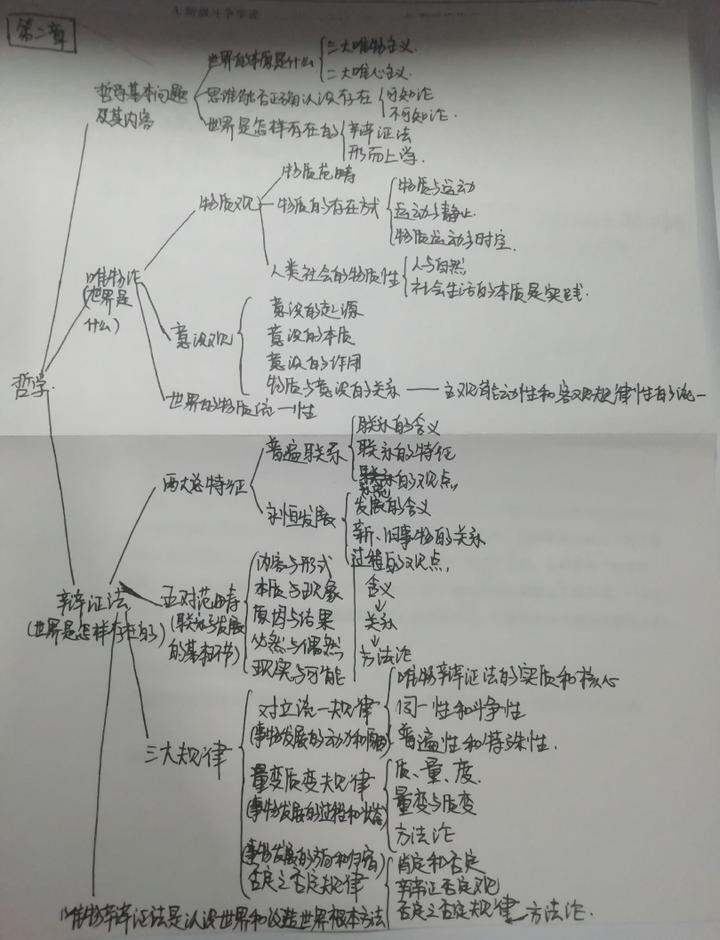 第二章
世界的本质是什么
三大唯物主义.
二大唯心主义.
哲学基本问题
及其内容
思维能否正确认识存在
可知论
不可知论.
世界是怎样存在的
辩证法
形而上学.
哲学.
唯物论
(世界是
什么)
物质观
物质范畴
物质的存在方式
物质与运动
运动与静止.
物质运动与时空.
人类社会的物质性
人与自然
社会生活的本质是实践.
意识观
意识的起源
意识的本质
意识的作用
物质与意识的关系 —— 主观能动性和客观规律性的统一
世界的物质统一性
辩证法
(世界是怎样存在的)
两大总特征
普遍联系
联系的含义
联系的特征
系统的观点,
永恒发展
发展的含义
新、旧事物的关系
过程的观点,
五对范畴
(联系与发展
的基本环节)
内容与形式
本质与现象
原因与结果
必然与偶然
现实与可能
含义
↓
关系
↓
方法论
三大规律
对立统一规律
(事物发展的动力和源泉)
唯物辩证法的实质和核心
同一性和斗争性
普遍性和特殊性.
量变质变规律
(事物发展的过程和状态)
质、量、度.
量变与质变
方法论
(事物发展的方向和归宿)
否定之否定规律
肯定和否定
辩证否定观
否定之否定规律—方法论.
唯物辩证法是认识世界和改造世界根本方法